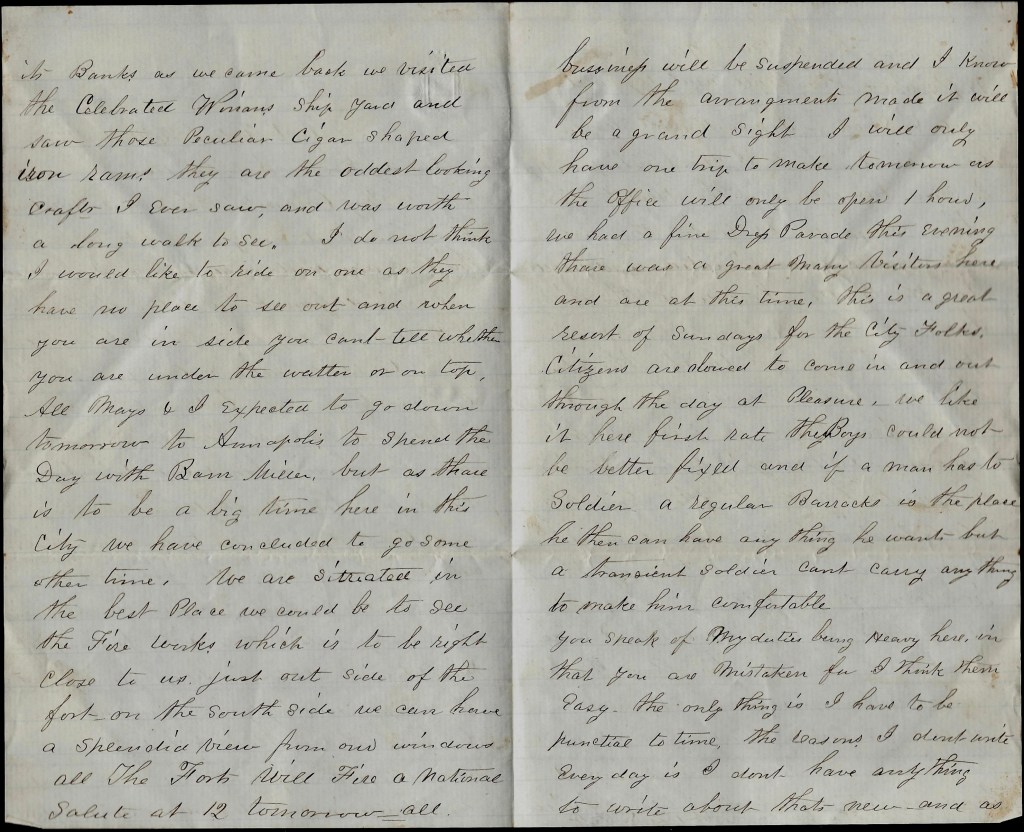 its Banks as we came back we visited
the Celebrated Winans Ship Yard and
saw those Peculiar Cigar shaped
iron rams. they are the oddest looking
crafts I Ever saw, and was worth
a long walk to see. I do not think
I would like to ride on one as they
have no place to see out and when
you are in side you cant tell whether
you are under the watter or on top.
All Mays & I Expected to go down
tomorrow to Annapolis to Spend the
Day with Bam Miller, but as thare
is to be a big time here in this
City we have concluded to go some
other time. We are Situated in
the best Place we could be to see
the Fire works which is to be right
Close to us. just out side of the
fort on the South side we can have
a Splendid view from our windows
all The Forts Will Fire a National
Salute at 12 tomorrow all.
bussiness will be suspended and I Know
from the arrangments made it will
be a grand sight I will only
have one trip to make tomorrow as
the Office will only be open 1 hour,
we had a fine Dress Parade this Evening
thare was a great Many Visitors here
and are at this time, this is a great
resort of Sundays for the City Folks.
Citizens are alowed to come in and out
through the day at Pleasure. we like
it here first rate the Boys could not
be better fixed and if a man has to
Soldier a regular Barracks is the place
he then can have any thing he wants but
a transient Soldier cant carry any thing
to make him comfortable
you speak of My duties being Heavy here. in
that you are Mistaken for I think them
Easy. the only thing is I have to be
punctial to time, the reasons I dont write
Every day is I dont have anything
to write about thats new and as